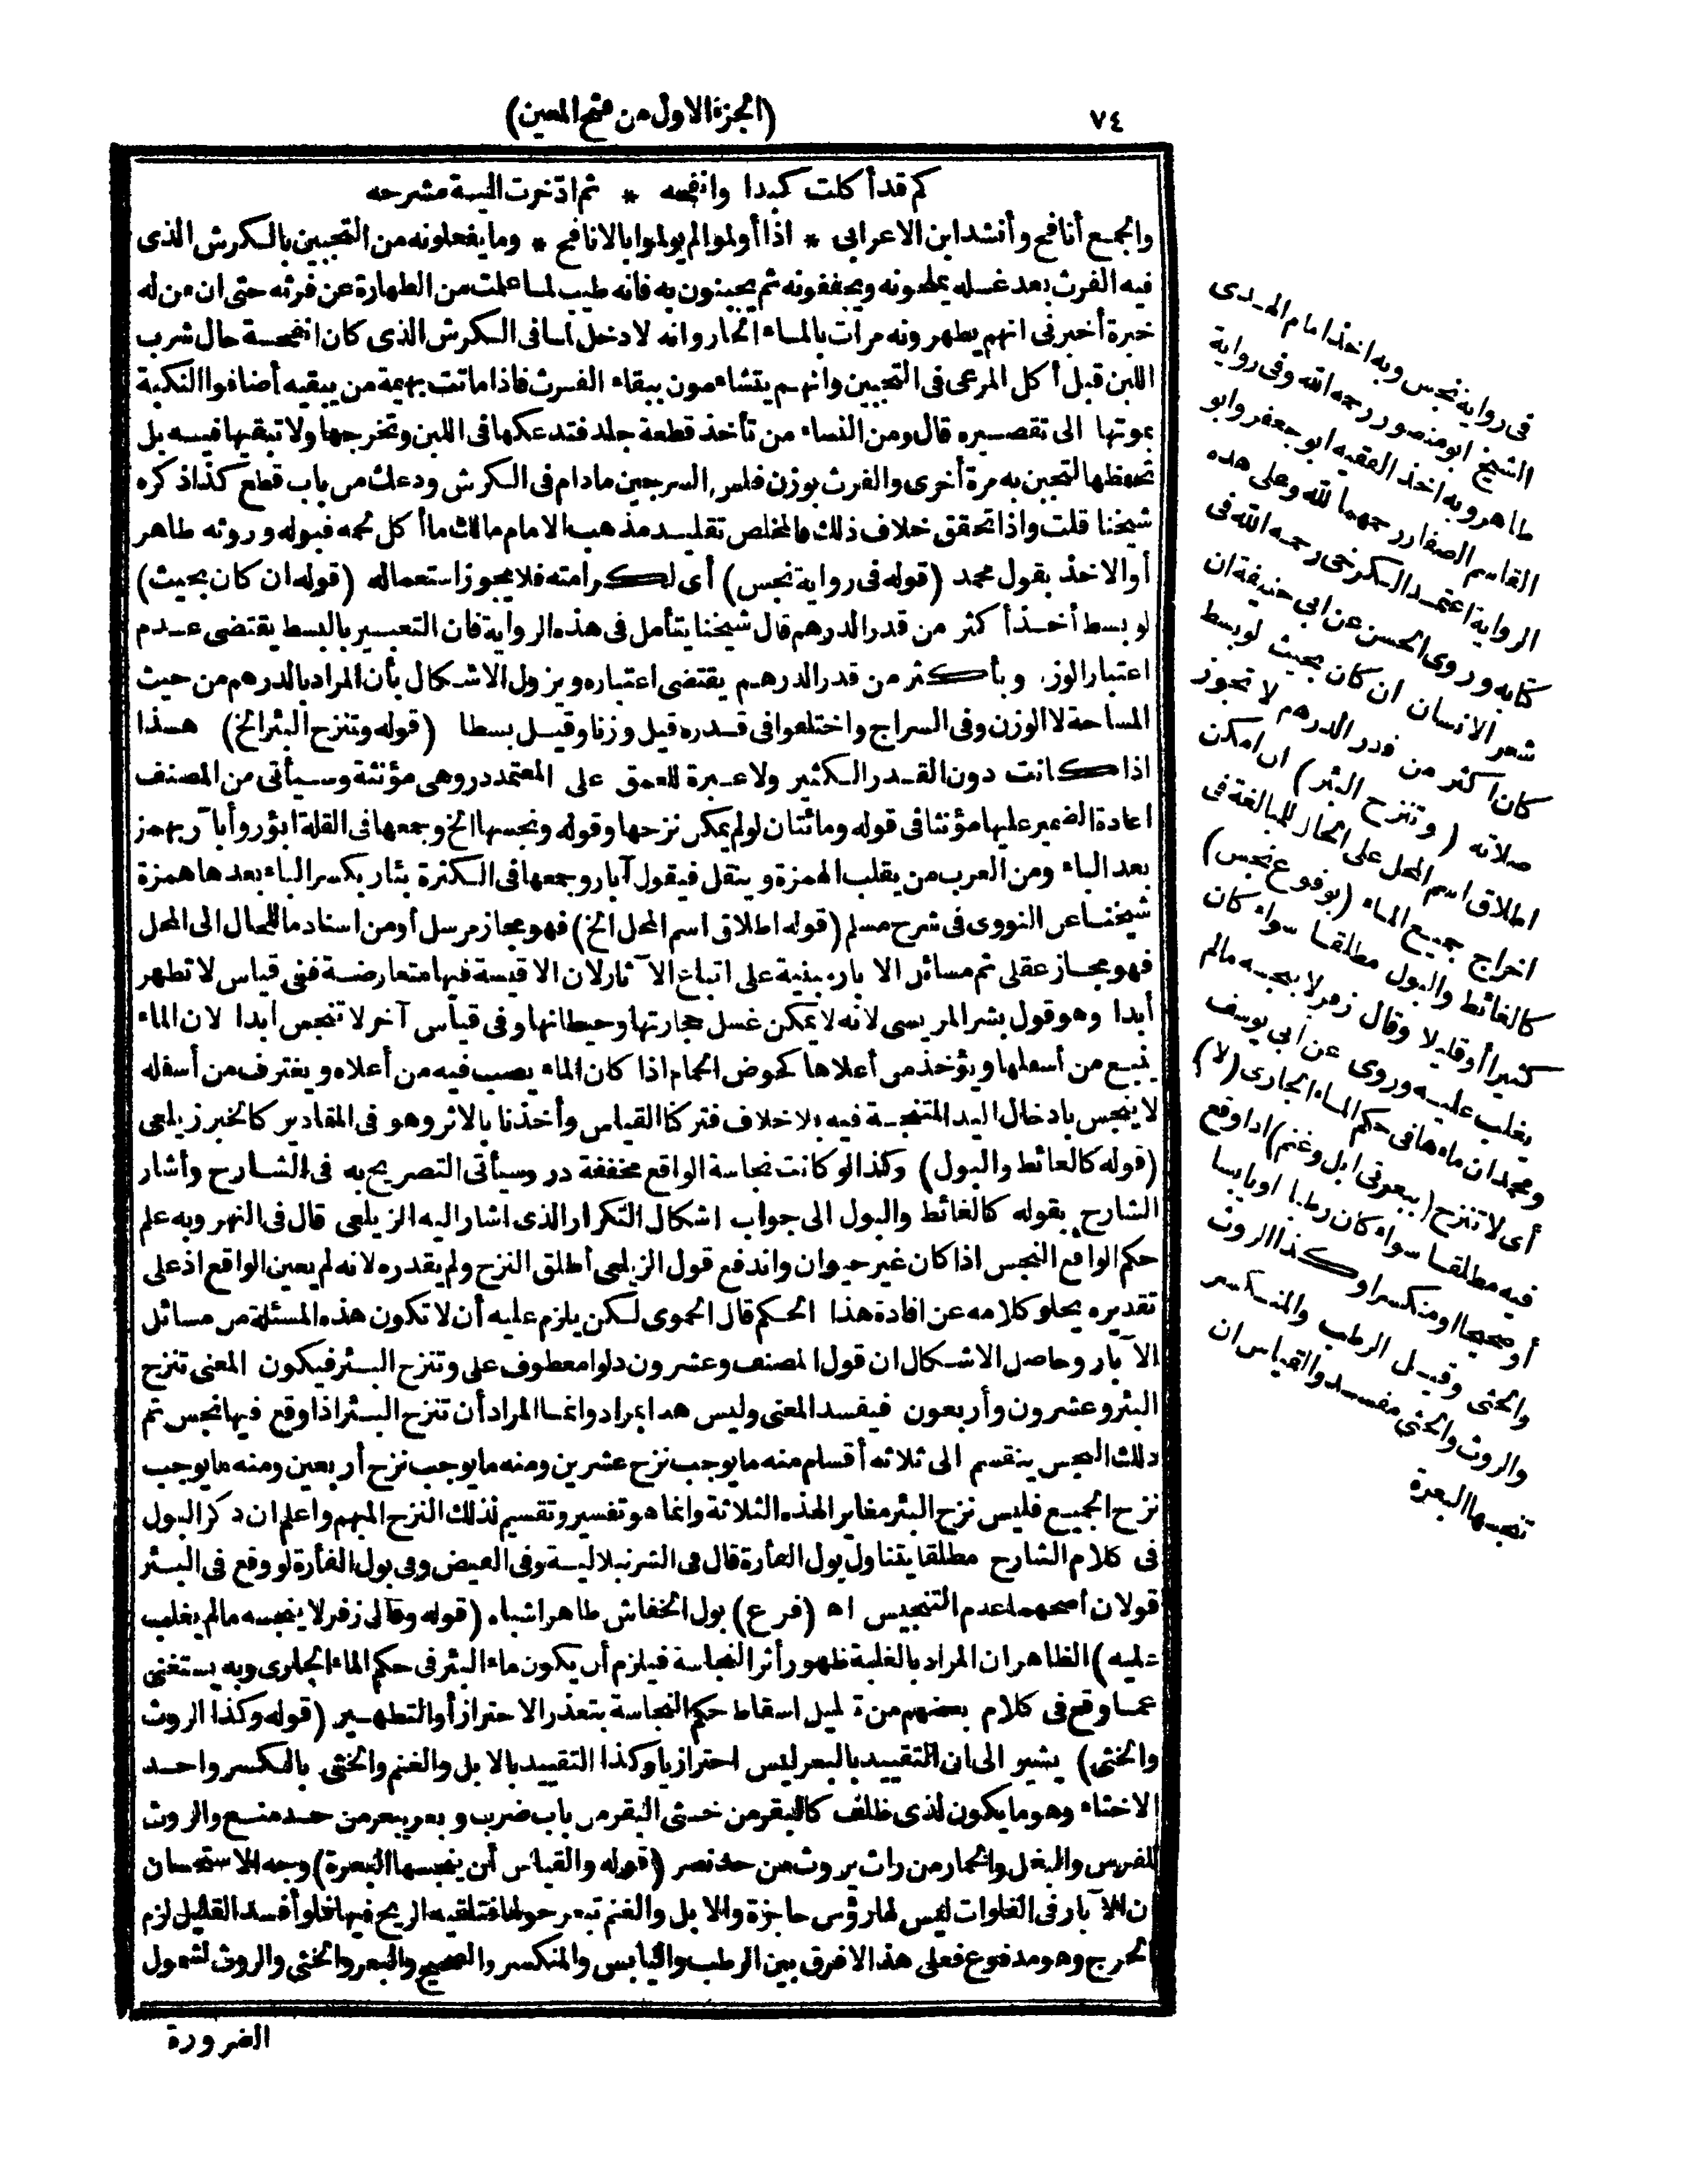 ٧٤
(الجزء الاول من فتح المعين)
كم قد أكلت كبدا وانفحه * ثم ادّخرت الية مشرحه
والجمع أنافح وأنشد ابن الاعرابى * اذا أولموا لم يولموا بالانافح * وما يفعلونه من التجبين بالكرش الذى
فيه الفرث بعد غسله يملحونه ويجففونه ثم يجبنون به فانه طيب لما علمت من الطهارة عن فرثه حتى ان من له
خبرة أخبرنى انهم يطهرونه مرات بالماء الحار وانه لا دخل لما فى الكرش الذى كان انفحة حال شرب
اللبن قبل أكل المرعى فى التجبين وانهم يتشاءمون ببقاء الفرث فاذا ماتت بهيمة من يبقيه أضافوا النكبة
بموتها الى تقصيره قال ومن النساء من تأخذ قطعة جلد فتدعكها فى اللبن وتخرجها ولا تبقيها فيه بل
تحفظها لتجبن به مرة أخرى والفرث بوزن فلس السرجين مادام فى الكرش ودعك من باب قطع كذا ذكره
شيخنا قلت واذا تحقق خلاف ذلك فالمخلص تقليد مذهب الامام مالك ما أكل لحمه فبوله وروثه طاهر
أو الاخذ بقول محمد (قوله فى رواية نجس) أى لكرامته فلا يجوز استعماله (قوله ان كان بحيث)
لو بسط أخذ أكثر من قدر الدرهم قال شيخنا يتأمل فى هذه الرواية فان التعبير بالبسط يقتضى عدم
اعتبار الوزن وبأكثر من قدر الدرهم يقتضى اعتباره ويزول الاشكال بأن المراد بالدرهم من حيث
المساحة لا الوزن وفى السراج واختلفوا فى قدره قيل وزنا وقيل بسطا (قوله وتنزح البئر الخ) هذا
اذا كانت دون القدر الكثير ولا عبرة للعمق على المعتمد در وهى مؤنثة وسيأتى من المصنف
اعادة الضمير عليها مؤنثا فى قوله ومائتان لو لم يمكن نزحها وقوله ونجسها الخ وجمعها فى القلة ابؤر وأبآر بهمز
بعد الباء ومن العرب من يقلب الهمزة وينقل فيقول آبار وجمعها فى الكثرة بئار بكسر الباء بعدها همزة
شيخنا عن النووى فى شرح مسلم (قوله اطلاق اسم المحل الخ) فهو مجاز مرسل أو من اسناد ما للحال الى المحل
فهو مجاز عقلى ثم مسائل الآبار مبنية على اتباع الآثار لان الاقيسة فيها متعارضة ففى قياس لا تطهر
أبدا وهو قول بشر المريسى لانه لا يمكن غسل حجارتها وحيطانها وفى قياس آخر لا تنجس ابدا لان الماء
ينبع من أسفلها ويؤخذ من أعلاها كحوض الحمام اذا كان الماء يصب فيه من أعلاه ويغترف من أسفله
لا ينجس بادخال اليد المتنجسة فيه بلا خلاف فتركنا القياس وأخذنا بالاثر وهو فى المقادير كالخبر زيلعى
(قوله كالغائط والبول) وكذا لو كانت نجاسة الواقع مخففة در وسيأتى التصريح به فى الشارح وأشار
الشارح بقوله كالغائط والبول الى جواب اشكال التكرار الذى اشار اليه الزيلعى قال فى النهر وبه علم
حكم الواقع النجس اذا كان غير حيوان واندفع قول الزيلعى أطلق النزح ولم يقدره لانه لم يعين الواقع اذ على
تقديره يخلو كلامه عن افادة هذا الحكم قال الحموى لكن يلزم عليه أن لا تكون هذه المسئلة من مسائل
الآبار وحاصل الاشكال ان قول المصنف وعشرون دلوا معطوف على وتنزح البئر فيكون المعنى تنزح
البئر وعشرون وأربعون فيفسد المعنى وليس هذا بمراد وانما المراد أن تنزح البئر اذا وقع فيها نجس ثم
ذلك النجس ينقسم الى ثلاثة أقسام منه ما يوجب نزح عشرين ومنه ما يوجب نزح أربعين ومنه ما يوجب
نزح الجميع فليس نزح البئر مغايرا لهذه الثلاثة وانما هو تفسير وتقسيم لذلك النزح المبهم واعلم ان ذكر البول
فى كلام الشارح مطلقا يتناول بول الفأرة قال فى الشرنبلالية وفى الفيض وفى بول الفأرة لو وقع فى البئر
قولان أصحهما عدم التنجيس اه (فرع) بول الخفاش طاهر اشباه (قوله وقال زفر لا ينجسه ما لم يغلب
عليه) الظاهر ان المراد بالغلبة ظهور أثر النجاسة فيلزم أن يكون ماء البئر فى حكم الماء الجارى وبه يستغنى
عما وقع فى كلام بعضهم من تعليل اسقاط حكم النجاسة بتعذر الاحتراز أو التطهير (قوله وكذا الروث
والخثى) يشير الى ان التقييد بالبعر ليس احترازيا وكذا التقييد بالابل والغنم والخثى بالكسر واحد
الاخثاء وهو ما يكون لذى ظلف كالبقر من خثى البقر من باب ضرب وبعر يبعر من حد منع والروث
للفرس والبغل والحمار من راث يروث من حد نصر (قوله والقياس أن ينجسها البعرة) وجه الاستحسان
ان الآبار فى الفلوات ليس لها رؤس حاجزة والابل والغنم تبعر حولها فتلقيه الريح فيها فلو أفسد القليل لزم
الحرج وهو مدفوع فعلى هذا لا فرق بين الرطب واليابس والمنكسر والصحيح والبعر والخثى والروث لشمول
الضرورة
فى رواية نجس وبه اخذ امام الهدى
الشيخ ابو منصور رحمه الله وفى رواية
طاهر وبه اخذ الفقيه ابو جعفر وابو
القاسم الصفار رحمهما الله وعلى هذه
الرواية اعتمد الكرخى رحمه الله فى
كتابه وروى الحسن عن ابى حنيفة ان
شعر الانسان ان كان بحيث لو بسط
كان اكثر من قدر الدرهم لا تجوز
صلاته (وتنزح البئر) ان امكن
اطلاق اسم المحل على الحال للمبالغة فى
اخراج جميع الماء (بوقوع نجس)
كالغائط والبول مطلقا سواء كان
كثيرا أو قليلا وقال زفر لا ينجسه ما لم
يغلب عليه وروى عن ابى يوسف
ومحمد ان ماءها فى حكم الماء الجارى (لا)
أى لا تنزح (ببعرتى ابل وغنم) اذا وقع
فيه مطلقا سواء كان رطبا او يابسا
أو صحيحا او منكسرا وكذا الروث
والخثى وقيل الرطب والمنكسر
والروث والخثى مفسد والقياس ان
تنجسها البعرة